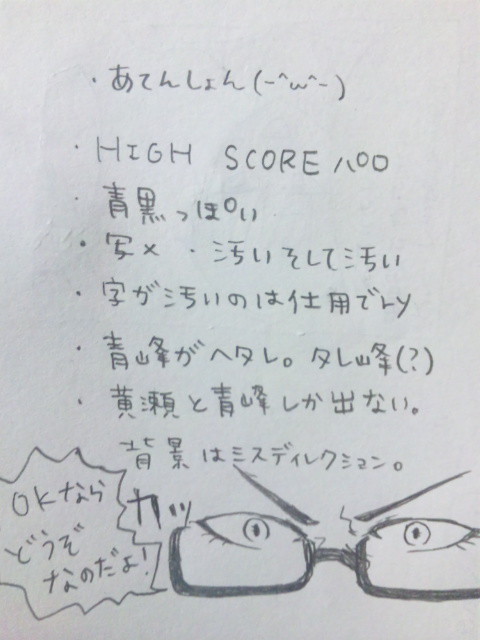 ・あてんしょん(-^ω^-)
・HIGH SCOREパロ
・青黒っぽい
・写× ・汚いそして汚い
・字が汚いのは仕用でry
・青峰がヘタレ。タレ峰(?)
・黄瀬と青峰しか出ない。
背景はミスディレクション。
カッ
OKなら
どうぞ
なのだよ!